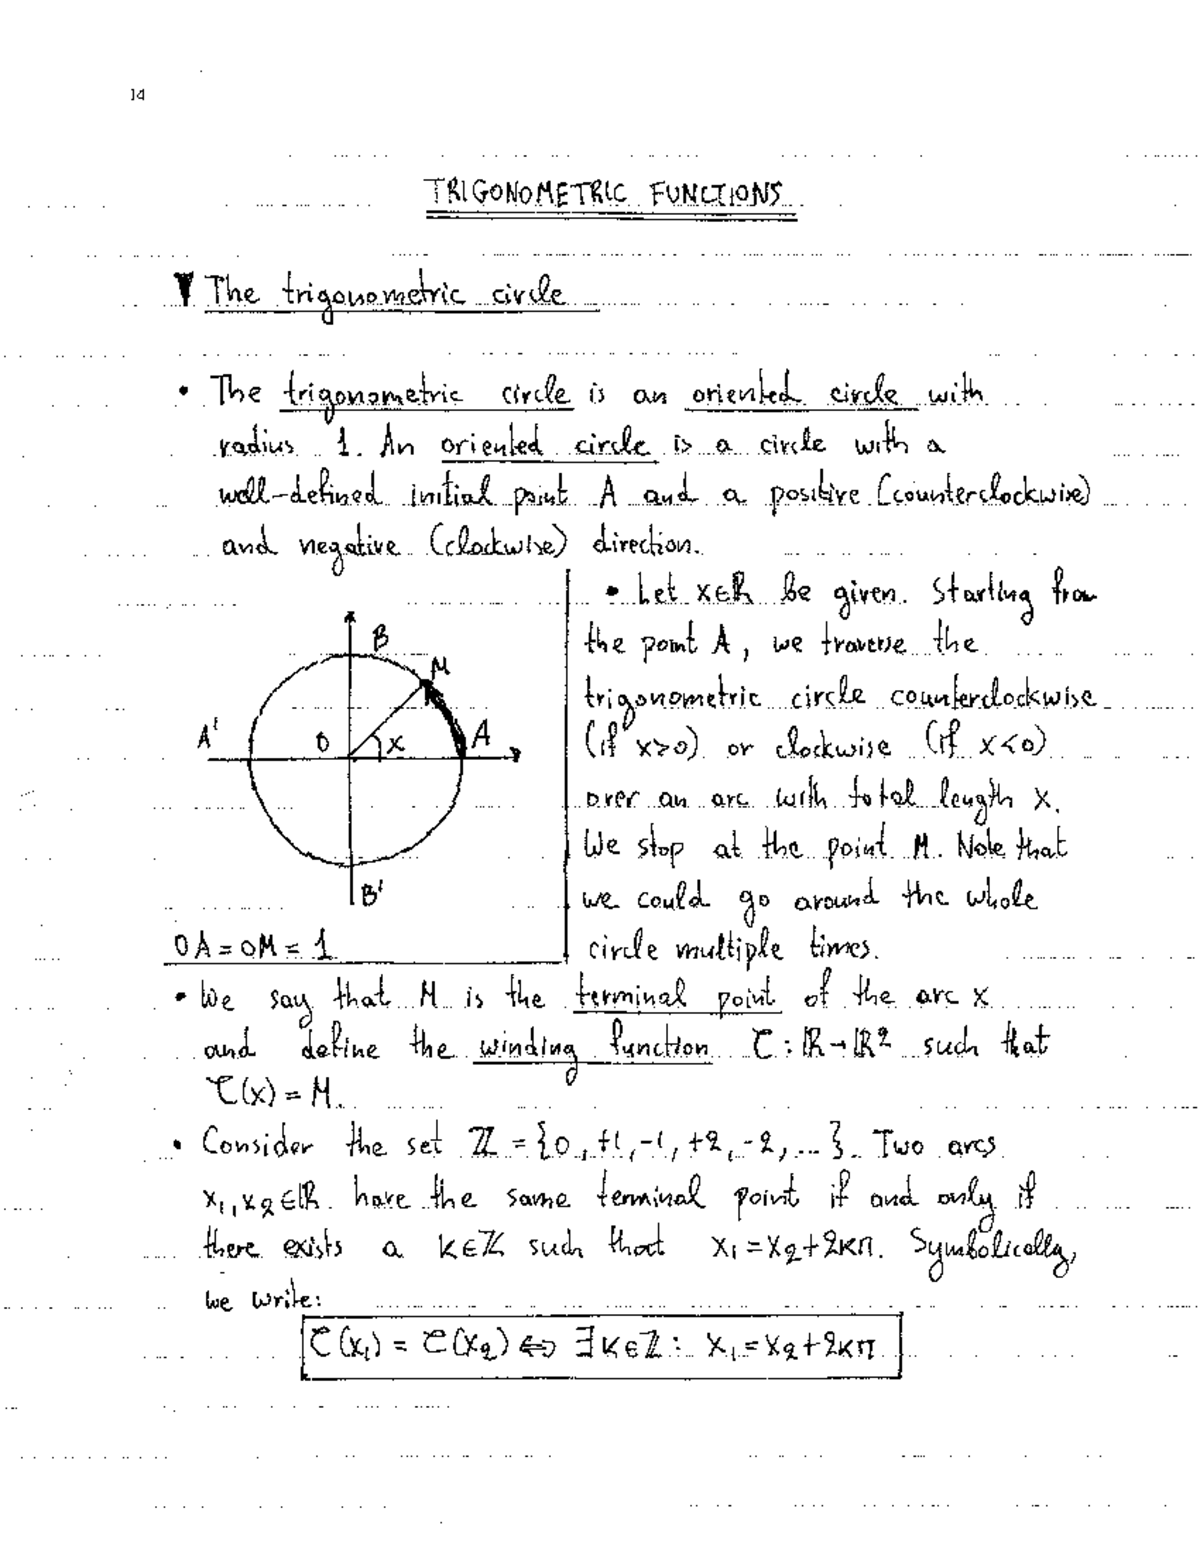 14
TRIGONOMETRIC FUNCTIONS
▼ The trigonometric circle
• The trigonometric circle is an oriented circle with
radius 1. An oriented circle is a circle with a
well-defined initial point A and a positive (counterclockwise)
and negative (clockwise) direction.
B
M
A'
O
x
A
B'
OA = OM = 1
• Let x∈ℝ be given. Starting from
the point A, we traverse the
trigonometric circle counterclockwise
(if x>0) or clockwise (if x<0)
over an arc with total length x.
We stop at the point M. Note that
we could go around the whole
circle multiple times.
• We say that M is the terminal point of the arc x
and define the winding function τ : ℝ→ℝ² such that
τ(x) = M.
• Consider the set ℤ = {0, +1, -1, +2, -2, ... }. Two arcs
x₁, x₂∈ℝ have the same terminal point if and only if
there exists a k∈ℤ such that x₁ = x₂+2kπ. Symbolically,
we write:
τ(x₁) = τ(x₂) ⇔ ∃k∈ℤ : x₁ = x₂+2kπ